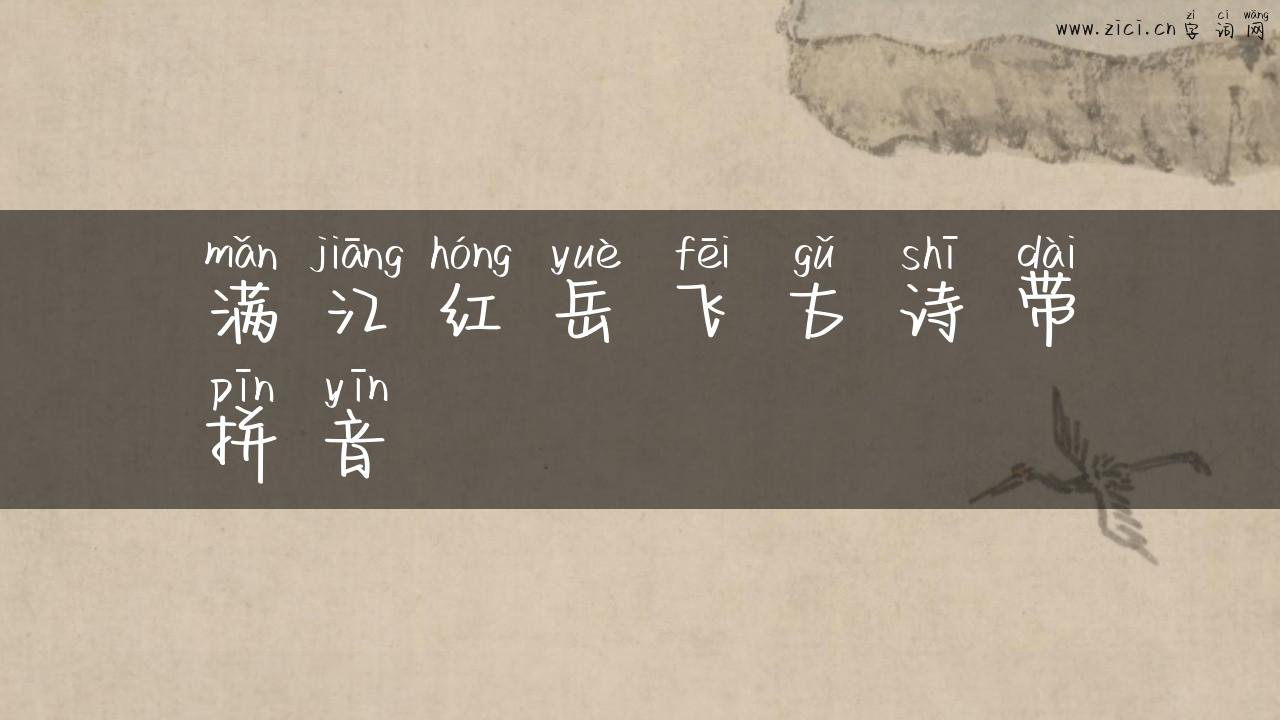 zì cí wǎng
www.zici.cn 字词网
mǎn jiāng hóng yuè fēi gǔ shī dài
满江红岳飞古诗带
pīn yīn
拼音